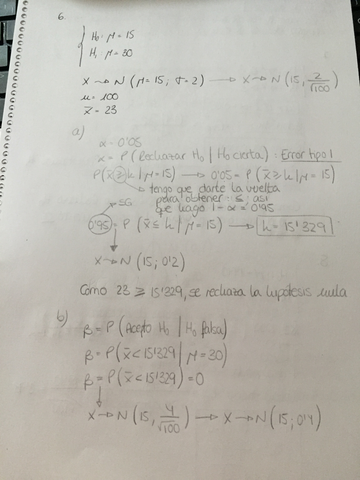 6.
H₀: μ = 15
H₁ μ = 30
X → N (μ = 15, σ = 2) → X → N (15, 2/√100)
n = 100
x̄ = 23
a)
α = 0'05
α = P (Rechazar H₀ | H₀ cierta) : Error tipo I
P(x̄ ≥ k | μ = 15) → 0'05 = P (x̄ ≥ k | μ = 15)
→ tengo que darle la vuelta
para obtener ≤, así
que hago 1 - α = 0'95
→ SG
0'95 = P (x̄ ≤ k | μ = 15) → k = 15'329
X → N (15; 0'2)
Como 23 ≥ 15'329, se rechaza la hipótesis nula
b)
β = P (Acepto H₀ | H₀ falsa)
β = P (x̄ < 15'329 | μ = 30)
β = P (x̄ < 15'329) = 0
X → N (15, 4/√100) → X → N (15; 0'4)